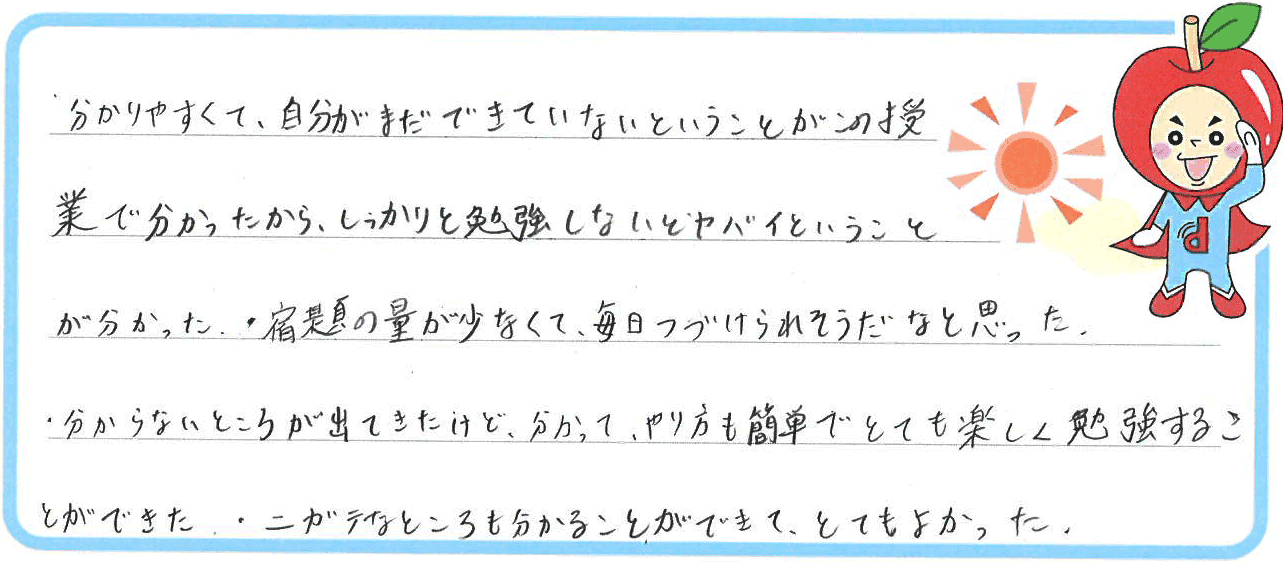 ・分かりやすくて、自分がまだできていないということがこの授
業で分かったから、しっかりと勉強しないとヤバイということ
が分かった。・宿題の量が少なくて、毎日つづけられそうだなと思った。
・分からないところが出てきたけど、分かって、やり方も簡単でとても楽しく勉強するこ
とができた。・ニガテなところも分かることができて、とてもよかった。